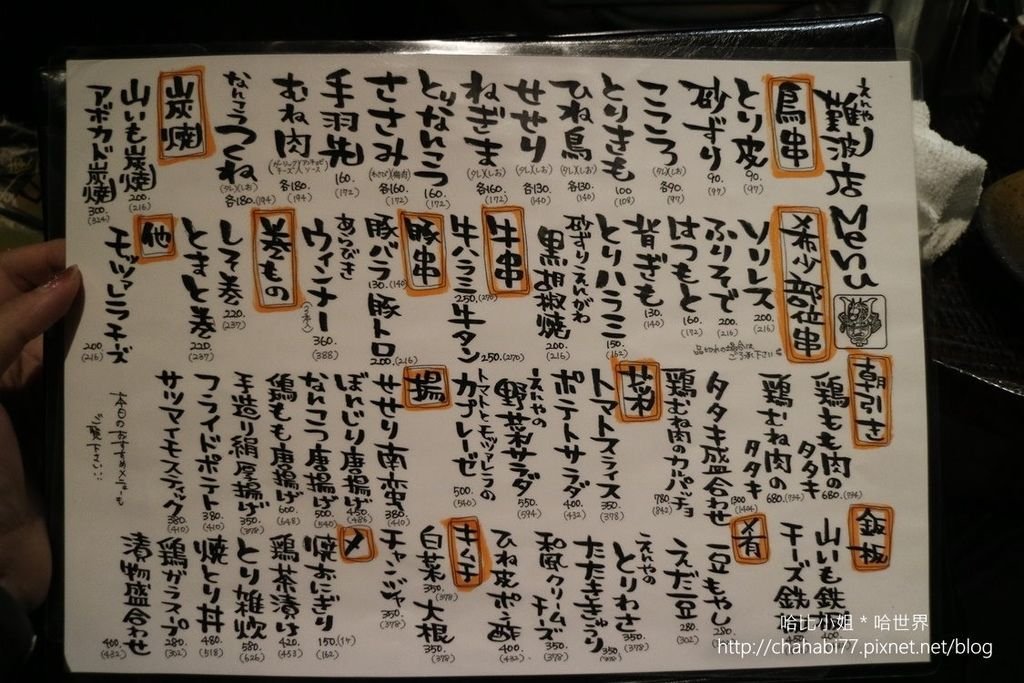 えんや
難波店 Menu
鳥串
とり皮 90.(97)
砂ずり 90.(97)
こころ (タレ)(しお) 各90.(97)
とりきも 100.(108)
ひね鳥 (タレ)(しお) 各130.(140)
せせり (タレ)(しお) 各130.(140)
ねぎま (タレ)(しお) 各160.(172)
とりなんこつ 160.(172)
ささみ (わさび)(梅肉) 各160.(172)
手羽先 160.(172)
むね肉 (ガーリックチーズ)(アンチョビソース) 各180.(194)
なんこつつくね (タレ)(しお) 各180.(194)
山炭焼
山いも炭焼 200.(216)
アボカド炭焼 300.(324)
希少部位串
ソリレス 200.(216)
ふりそで 200.(216)
はつもと 160.(172)
品切れの場合はご了承下さい
背ぎも 130.(140)
とりハラミ 150.(162)
砂ずりえんがわ
黒胡椒焼 200.(216)
牛串
牛ハラミ 250.(270)
牛タン 250.(270)
豚串
豚バラ 130.(140)
豚トロ 200.(216)
あらびき
ウィンナー (2本入) 360.(388)
巻もの
しそ巻 220.(237)
とまと巻 220.(237)
他
モッツァレラチーズ 200.(216)
朝引き
鶏もも肉のタタキ 680.(734)
鶏むね肉のタタキ 680.(734)
タタキ盛合わせ 1300.(1404)
鶏むね肉のカルパッチョ 780.(842)
菜
トマトスライス 350.(378)
ポテトサラダ 400.(432)
えんやの
野菜サラダ 550.(594)
トマトとモッツァレラの
カプレーゼ 500.(540)
揚
せせり南蛮 380.(410)
ぼんじり唐揚げ 450.(486)
なんこつ唐揚げ 500.(540)
鶏もも唐揚げ 600.(648)
手造り絹厚揚げ 350.(378)
フライドポテト 380.(410)
サツマイモスティック 380.(410)
本日のおすすめメニューも
ご覧下さい…
鉄板
山いも鉄
チーズ鉄
〆肴
豆もやし 280.
えだ豆 280.(302)
えんやの
とりわさ 350.(378)
たたききゅうり 350.(378)
和風クリームチーズ 350.(378)
ひね皮ポン酢 400.(432)
キムチ
白菜 350.(378)
大根 350.(378)
チャンジャ 350.(378)
〆
焼おにぎり 150.(1ケ)(162)
鶏茶漬け 420.(453)
とり雑炊 580.(626)
焼とり丼 480.(518)
鶏ガラスープ 280.(302)
漬物盛合わせ 400.(432)
哈比小姐 * 哈世界
http://chahabi77.pixnet.net/blog